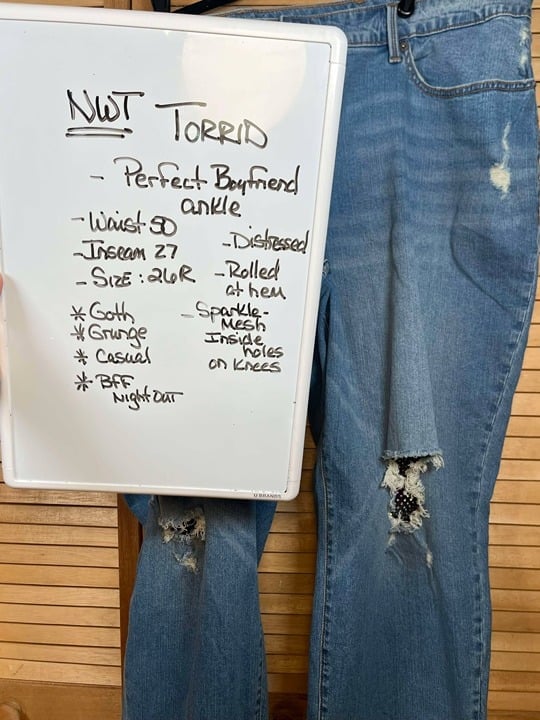 NWT TORRID
- Perfect Boyfriend
ankle
- Waist 50
- Inseam 27
- SIZE : 26R
* Goth
* Grunge
* Casual
* BFF
Night OUT
- Distressed
- Rolled
at hem
- Sparkle-
Mesh
Inside
holes
on Knees
U BRANDS